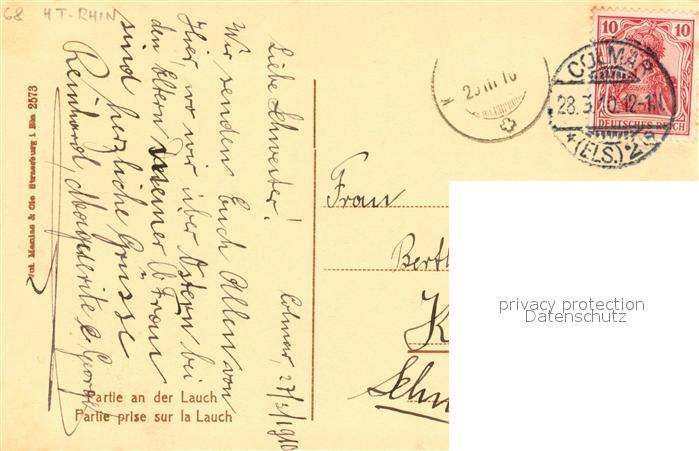 68 HT-RHIN
Colmar, 27/3/1910
Liebe Schwester!
Wir senden Euch Allen von
Hier, wo wir über Ostern bei
den Eltern meiner lb Frau
sind herzliche Grüsse
Reinhard, Marguerite & Georges
Jul. Manias & Cie Strassburg i Els 2573
Partie an der Lauch
Partie prise sur la Lauch
10 10
DEUTSCHES REICH
COLMAR
28.3.10.12-1N.
*(ELS.)2
Frau
Berth
K
Schw
privacy protection
Datenschutz